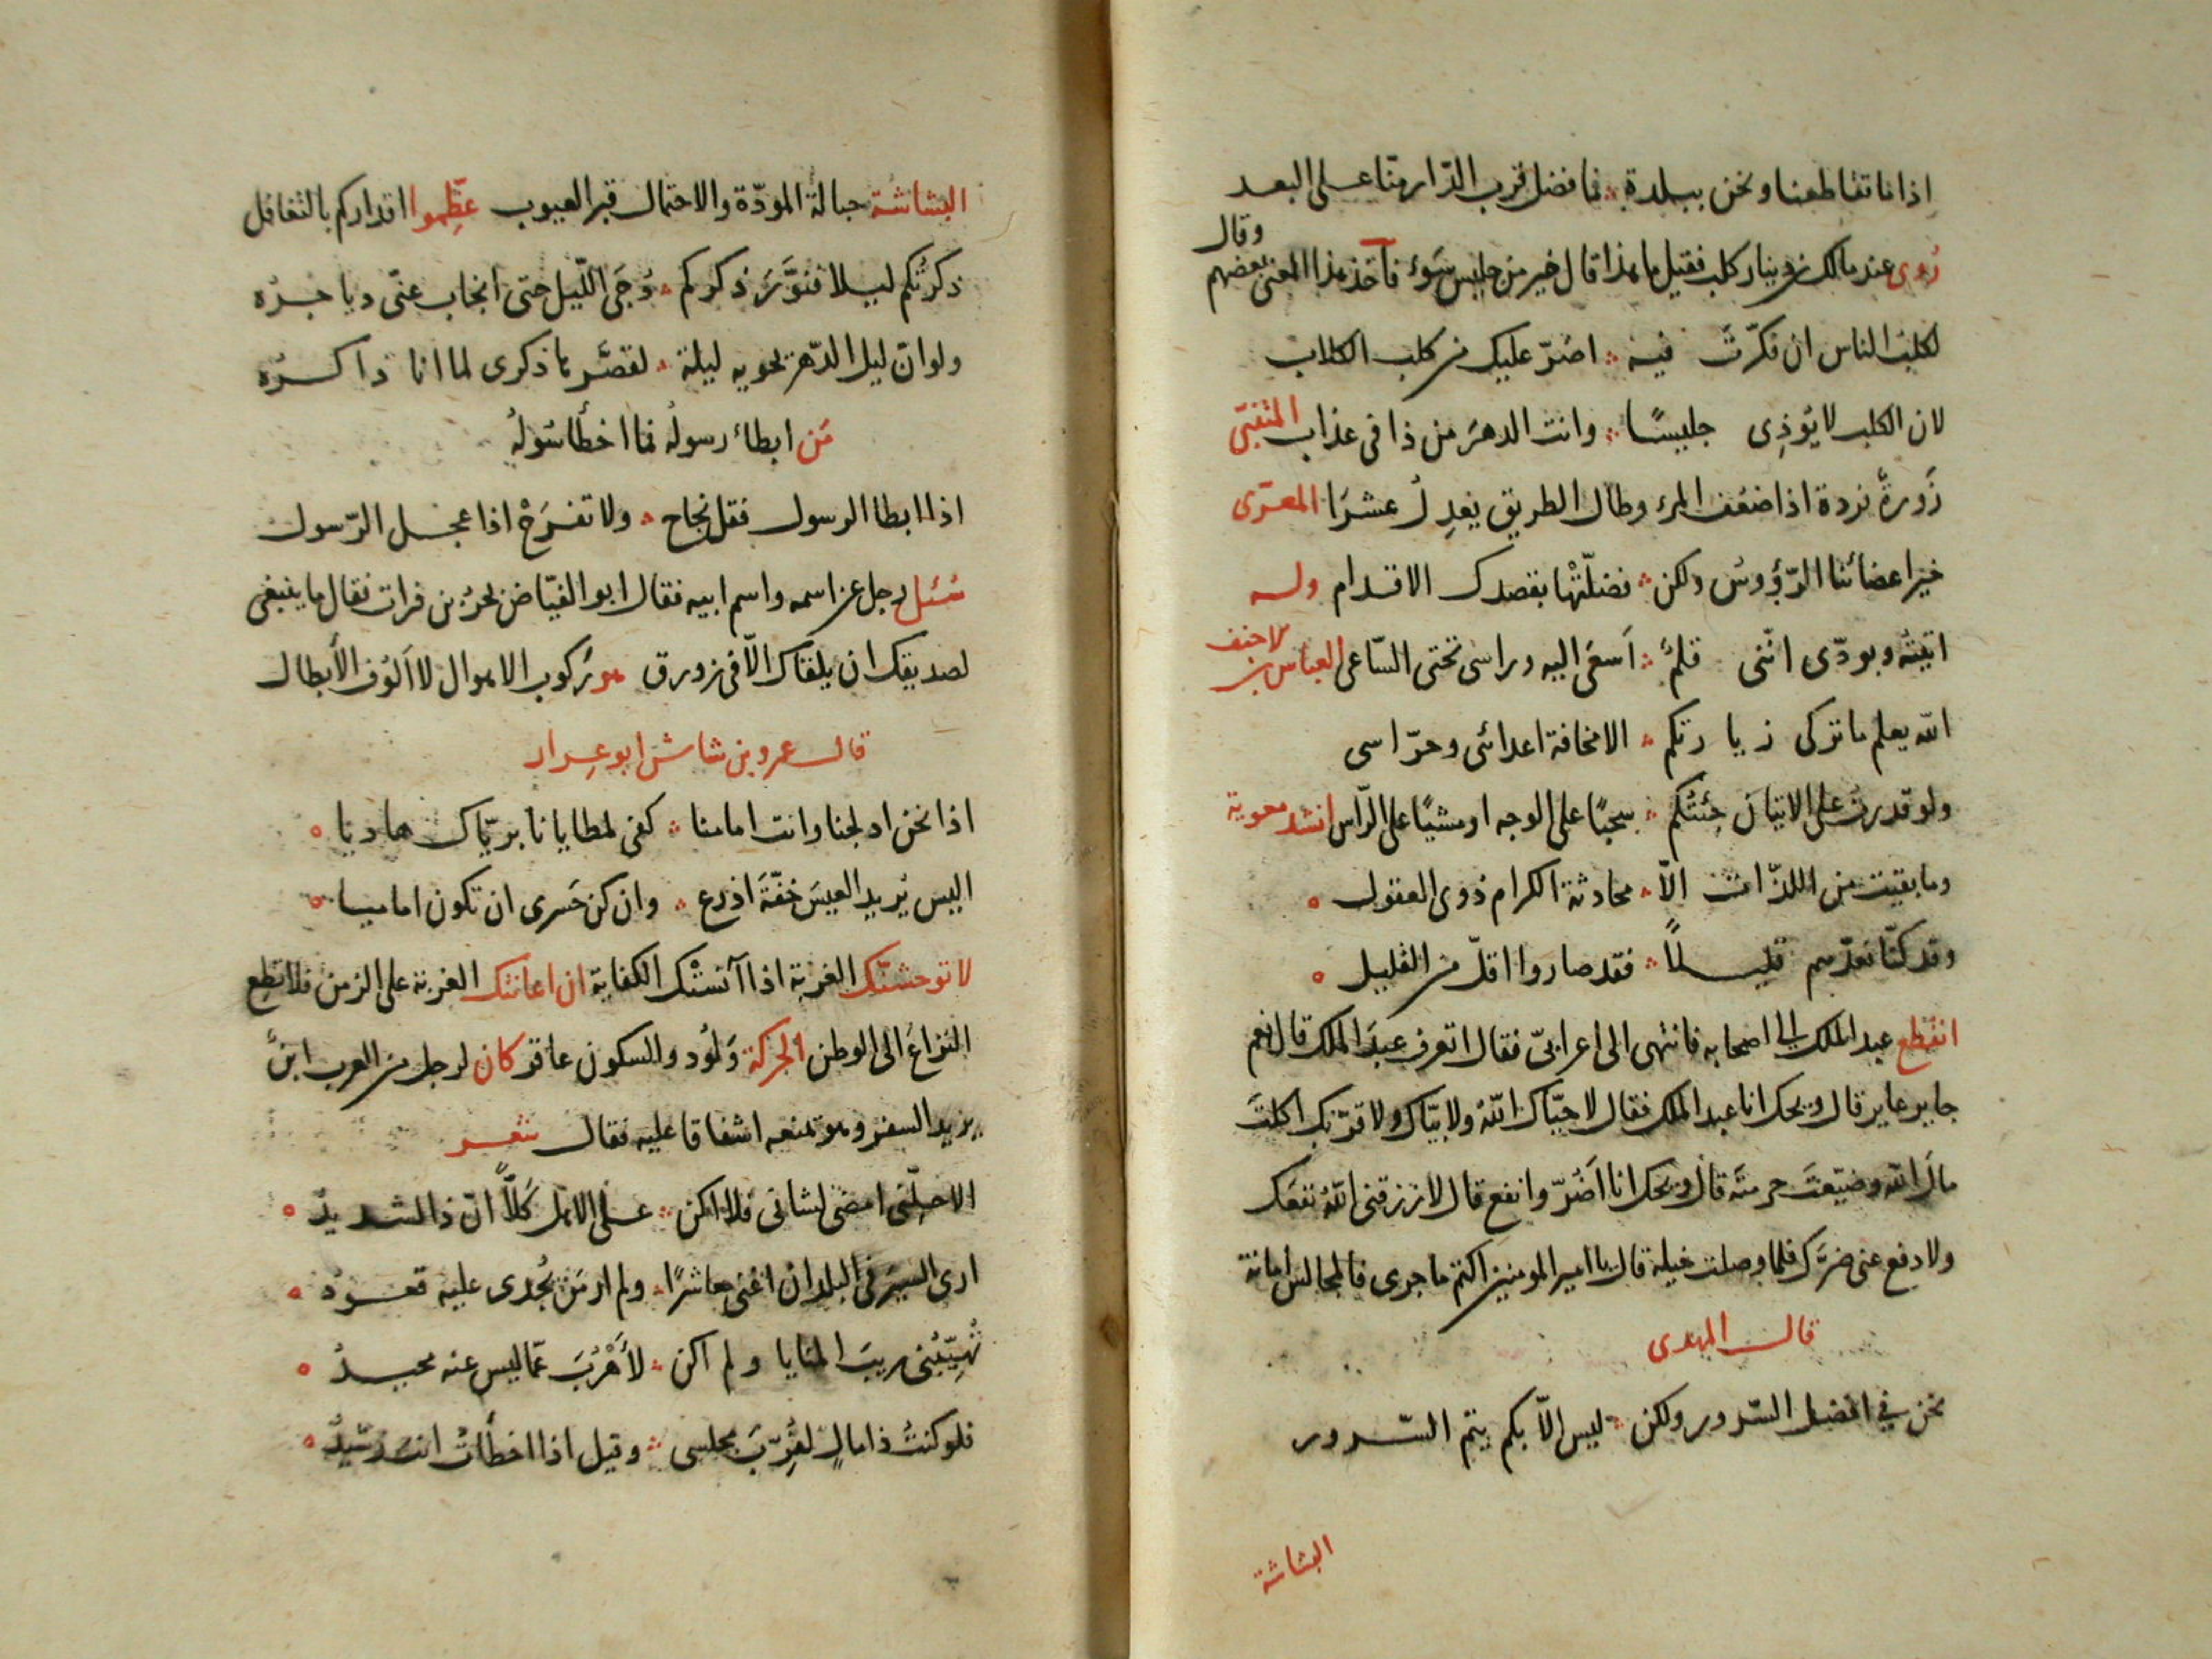 اذا ما تقاطعنا ونحن ببلدة فما فضل قرب الدّار منّا على البعد
وقال
رُوى عند مالك بن دينار كلب فقيل ما هذا قال خير من جليس سَوء فأخذ هذا المعنى بعضهم
لكلبُ الناس ان فكّرتَ فيه اضرّ عليك من كلب الكلاب
لان الكلب لا يُوذِى جليسًا وانت الدهرَ من ذا فى عذاب المتنبّى
زَورةٌ نزدة اذا ضعُف المرء وطال الطريق يعدِلُ عشرَا المعرّى
خير اعضائنا الرّؤوسُ ولكن فضلّتْها بقصدك الاقدام وله
اتيتُه وبودّى انّنى قلمٌ اَسعَى اليه وراسى تحتى السّاعى العباس بن الاحنف
الله يعلم ما تركى زيارتكم الا مخافة اعدائى وحرّاسى
ولو قدرت على الاتيان جِئتُكم سحبًا على الوجه او مشيًا على الرّاس انشد معوية
وما بقيت من اللذّات الاّ محادثة الكرام ذوى العقول
وقد كنّا نعدّهم قليلاً فقد صاروا اقلّ من القليل
انقطع عبد الملك الى اصحابه فانتهى الى اعرابىّ فقال اتعرف عبدَ الملك قال نعم
جاير عاير قال ويحك انا عبد الملك فقال لا حيّاك اللهُ ولا بيّاك ولا قرّبك اكلتَ
مالَ الله وضيّعتَ حرمتَه قال ويحك انا اَضُرّ وانفع قال لا رزقنى اللهُ نفعَك
ولا دفع عنى ضرَّك فلما وصلت خيله قال يا امير المومنين اكتم ما جرى فالمجالس امانة
قال المهدى
نحن فى افضل السّرور ولكن ليس الاّ بكم يتمّ السّرور
البشاشة
البشاشة حبالةُ المودّة والاحتمال قبر العيوب عظِّموا اقداركم بالتغافل
ذكرتُكم ليلا فنوَّرَ ذكركم دُجَى اللّيل حتى انجاب عنّى دياجرُه
ولو انّ ليل الدّهر تحويه ليلة لقصَّرها ذكرى لما انا ذاكرُه
مَن ابطاء رسولُه فما اخطأ سُولُه
اذا ابطا الرسول فقل نجاح ولا تفرَحْ اذا عجل الرّسول
سُئل رجل عن اسمه واسم ابيه فقال ابو الفيّاض بحرُ بن فرات فقال ما ينبغى
لصديقك ان يلقاك الاّ فى زورق هو رَكوب الاهوال لا اَلُوف الأبطال
قال عمرو بن شاش ابو عِرار
اذا نحن ادلجنا وانت امامنا كفى لمطايانا بريّاك هاديا
اليس يزيد العيسَ خفّةَ اذرع وان كن حَسرى ان تكون اماميا
لا توحشنّك الغربة اذا آنستْك الكفاية ان اعانتك الغربة على الزمن فلا تطع
النزاعَ الى الوطن الحركة وَلُود والسكون عاقر كان لرجل من العرب ابنٌ
يريد السفر وهو تمنعه اشفاقا عليه فقال شعر
الا خلّنى امضى لشانى فلا اكن على الاهل كَلاًّ انّ ذا لشديدٌ
ارى السيرَ فى البلدان اغنى معاشرًا ولم ار مَن يُجدى عليه قعودُ
تُهيّبُنى ريبَ المنايا ولم اكن لأَهْرُبَ عمّا ليس عنه محيدُ
فلو كنتُ ذا مالٍ لقُرِّبَ مجلسى وقيل اذا اخطأتُ انت رشيدُ